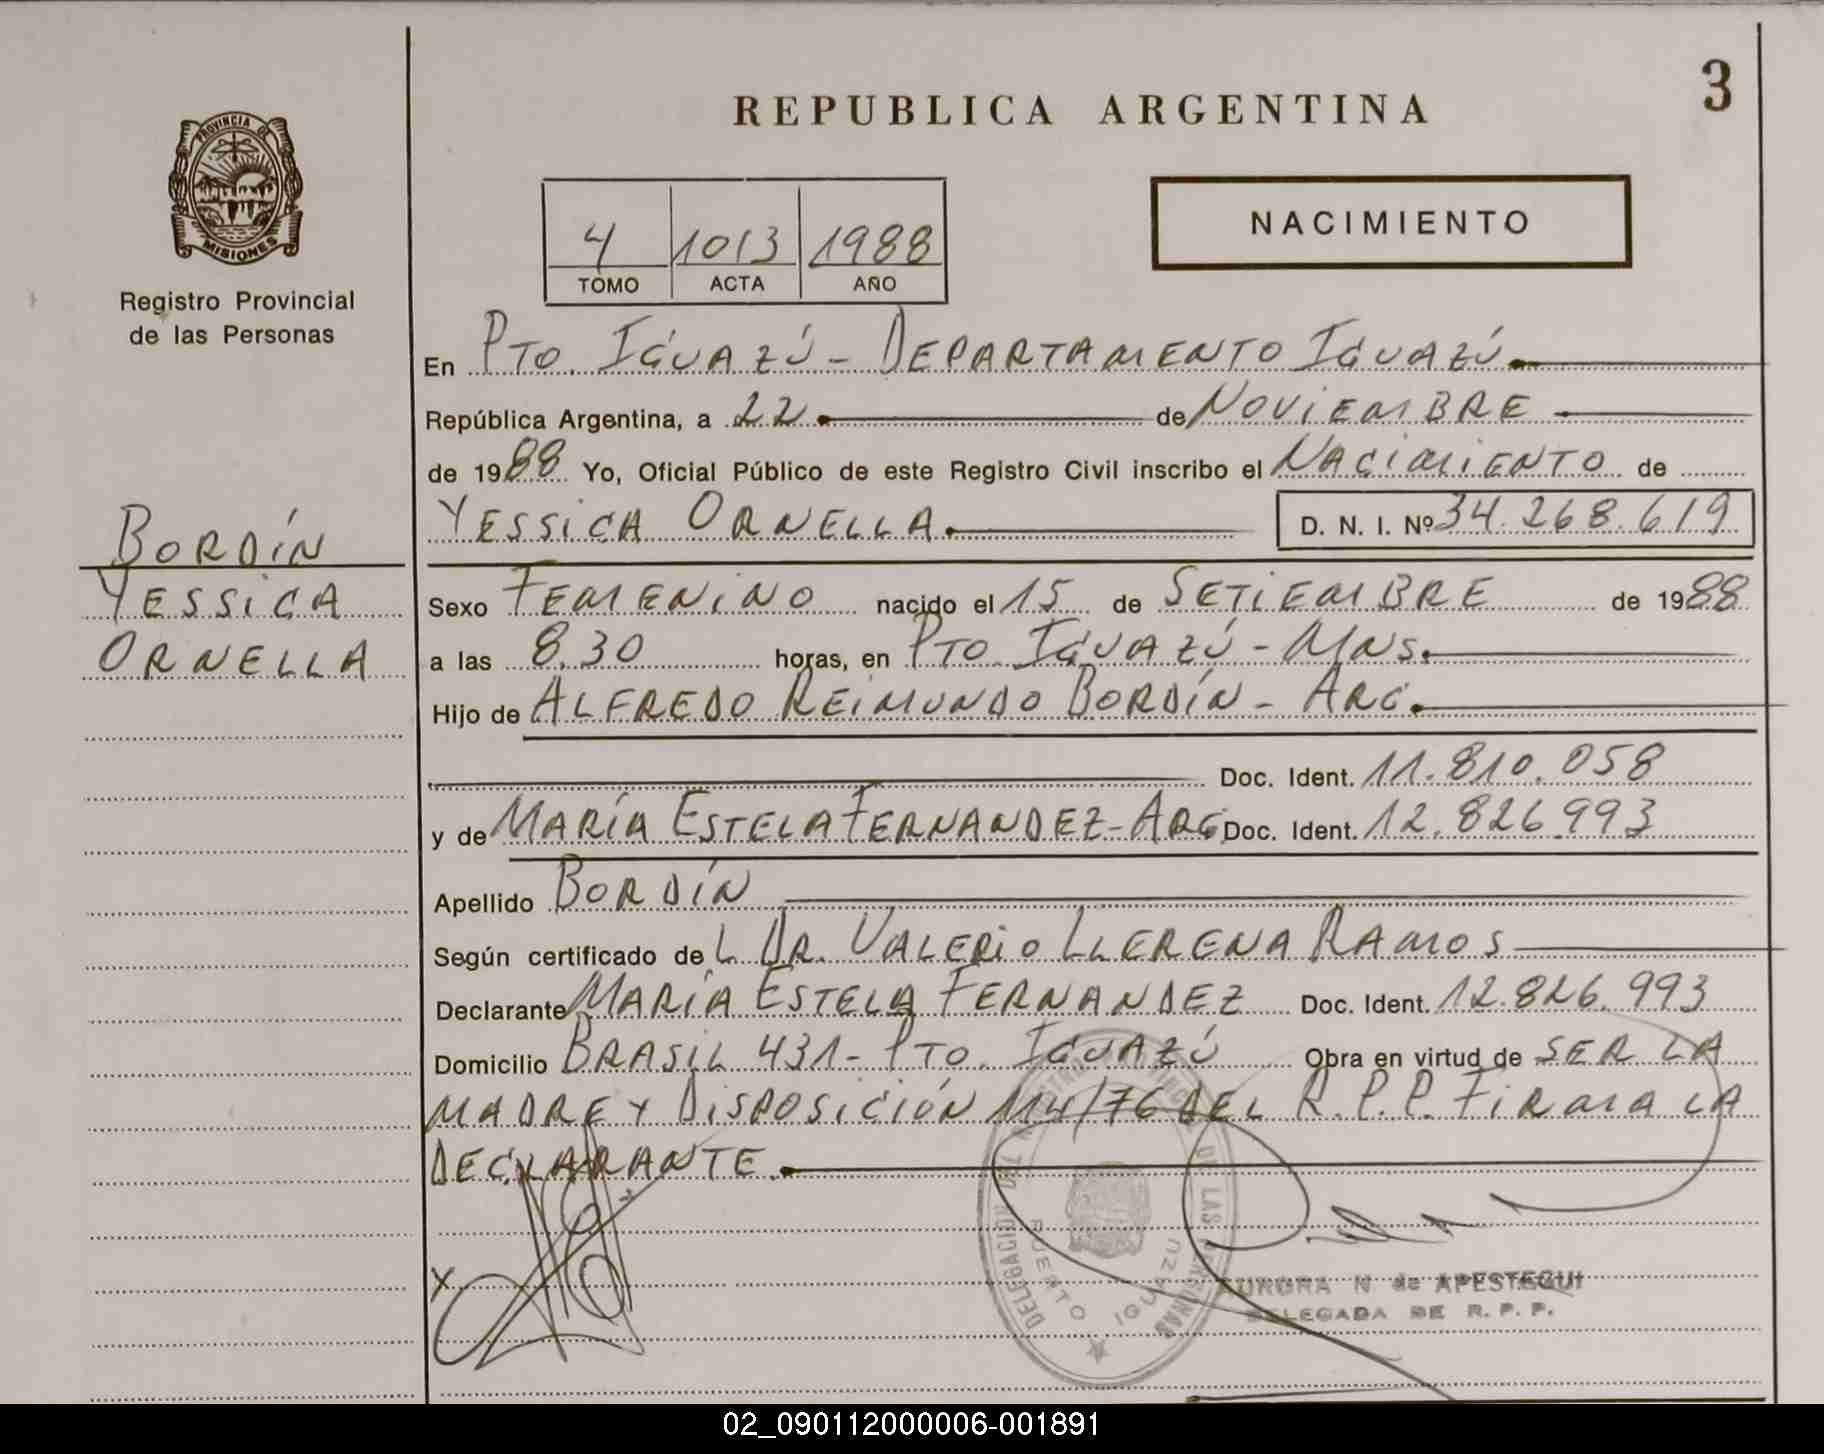 3
REPUBLICA ARGENTINA
PROVINCIA DE
MISIONES
Registro Provincial
de las Personas
NACIMIENTO
4 1013 1988
TOMO ACTA AÑO
En PTO. IGUAZÚ - DEPARTAMENTO IGUAZÚ
República Argentina, a 22 de NOVIEMBRE
de 1988 Yo, Oficial Público de este Registro Civil inscribo el NACIMIENTO de
YESSICA ORNELLA. D. N. I. Nº 34.268.619
BORDÍN
YESSICA
ORNELLA
Sexo FEMENINO nacido el 15 de SETIEMBRE de 1988
a las 8.30 horas, en PTO IGUAZÚ - MNS.
Hijo de ALFREDO REIMUNDO BORDÍN - ARG.
Doc. Ident. 11.810.058
y de MARÍA ESTELA FERNANDEZ - ARG Doc. Ident. 12.826.993
Apellido BORDÍN
Según certificado de L DR. VALERIO LLERENA RAMOS
Declarante MARÍA ESTELA FERNANDEZ Doc. Ident. 12.826.993
Domicilio BRASIL 431 - PTO. IGUAZÚ Obra en virtud de SER LA
MADRE Y DISPOSICIÓN 114/76 DEL R.P.P. FIRMA LA
DECLARANTE.
X
DELEGACION
DE LAS PERSONAS
PUERTO IGUAZU
AURORA N de APESTEGUI
DELEGADA DE R. P. P.
02_090112000006-001891